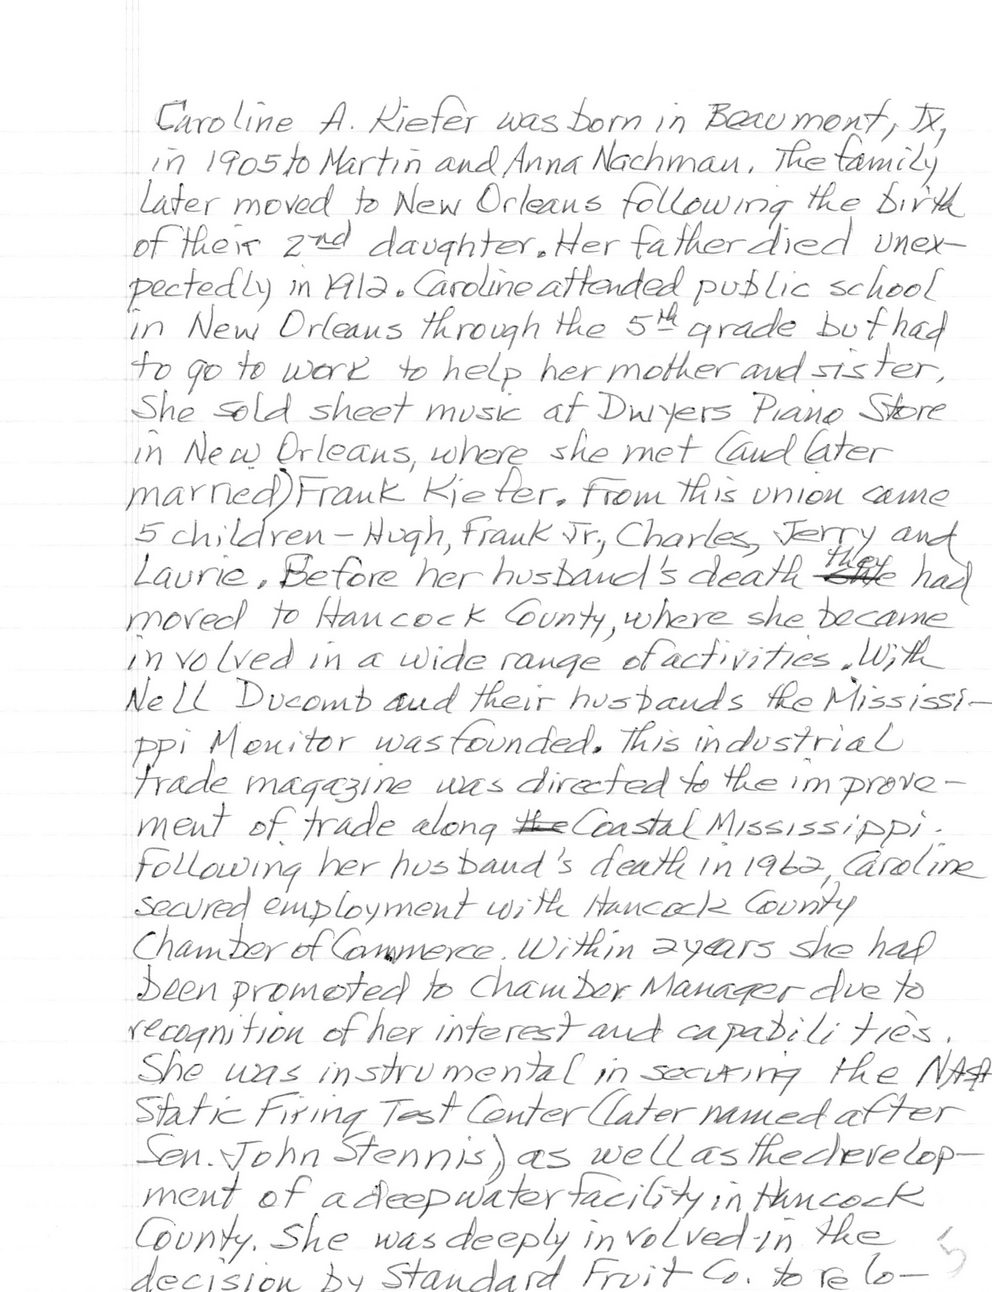 Caroline A. Kiefer was born in Beaumont, TX,
in 1905 to Martin and Anna Nachman. The family
later moved to New Orleans following the birth
of their 2nd daughter. Her father died unex-
pectedly in 1912. Caroline attended public school
in New Orleans through the 5th grade but had
to go to work to help her mother and sister.
She sold sheet music at Dwyers Piano Store
in New Orleans, where she met (and later
married) Frank Kiefer. From this union came
5 children - Hugh, Frank Jr., Charles, Jerry and
Laurie. Before her husband's death they had
moved to Hancock County, where she became
involved in a wide range of activities. With
Nell Ducomb and their husbands the Mississi-
ppi Monitor was founded. This industrial
trade magazine was directed to the improve-
ment of trade along the Coastal Mississippi.
Following her husband's death in 1962, Caroline
secured employment with Hancock County
Chamber of Commerce. Within 2 years she had
been promoted to Chamber Manager due to
recognition of her interest and capabilities.
She was instrumental in securing the NASA
Static Firing Test Center (later named after
Sen. John Stennis) as well as the develop-
ment of a deepwater facility in Hancock
County. She was deeply involved in the
decision by Standard Fruit Co. to relo-
5